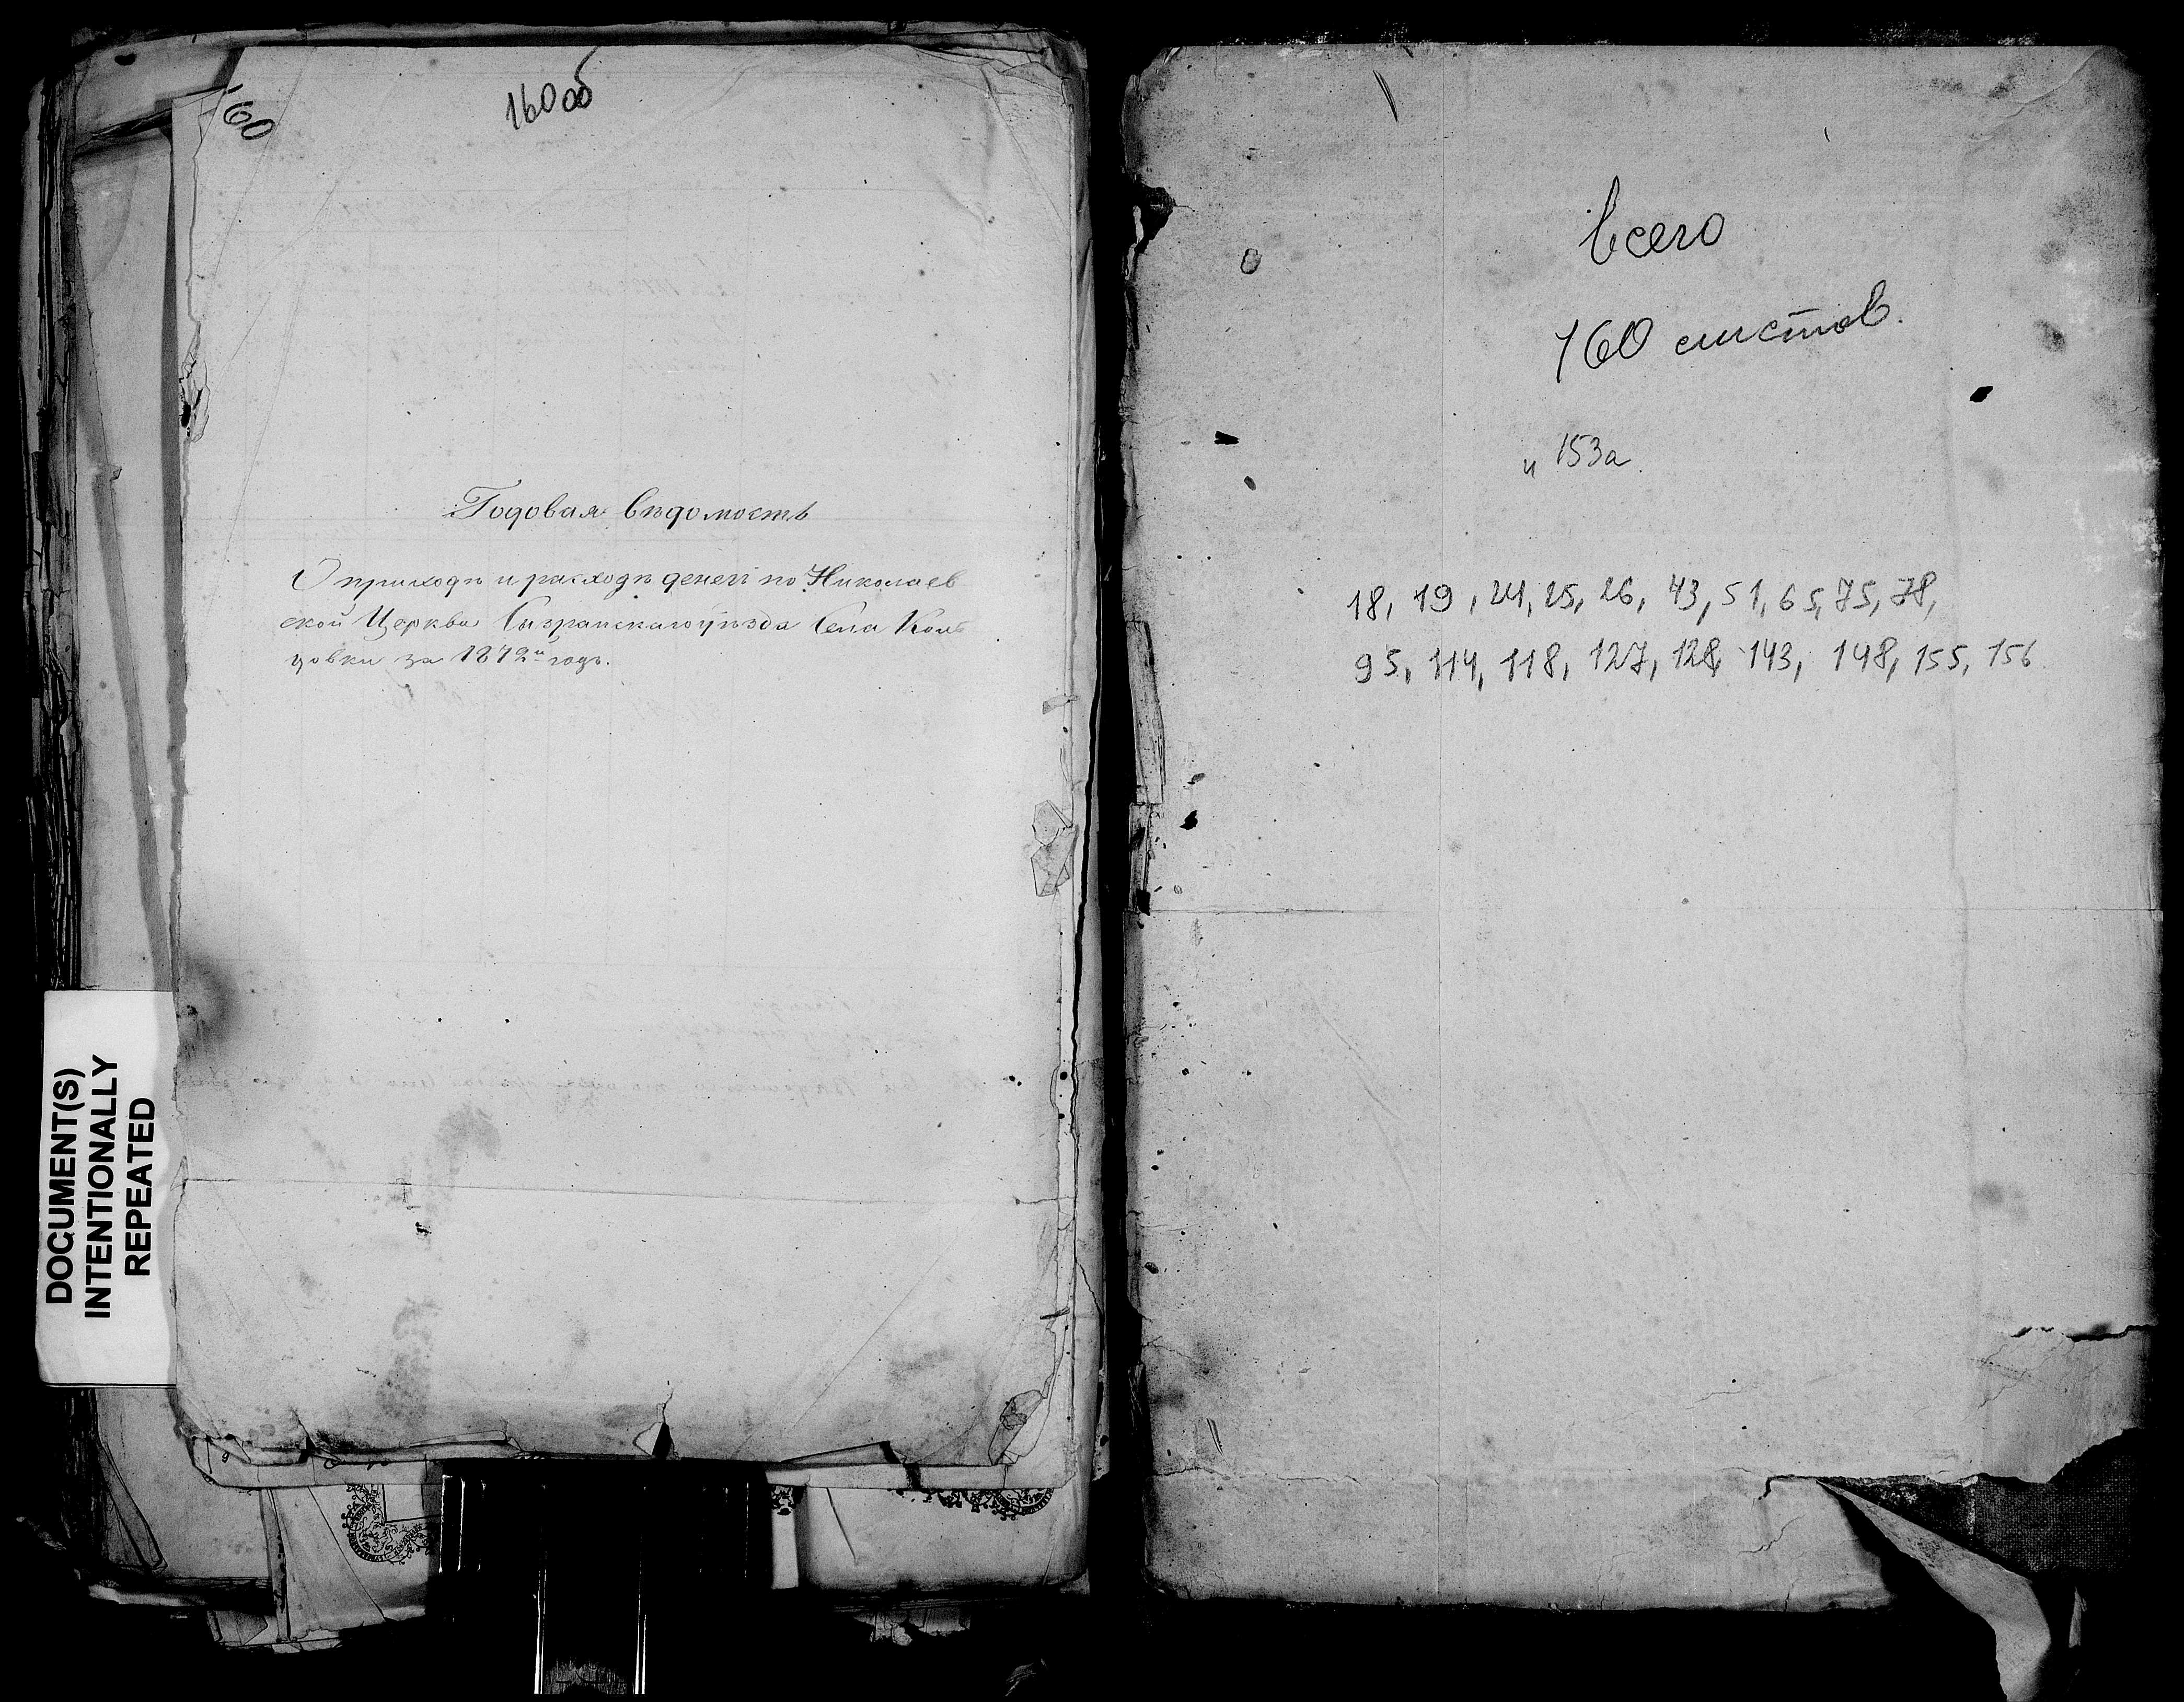 160
160 об
Годовая вѣдомость
О приходѣ и расходѣ денегъ по Николаев
ской Церкви Сызранскаго уѣзда Села Коп
цовки за 1872й годъ.
DOCUMENT(S)
INTENTIONALLY
REPEATED
всего
160 листов.
и 153а.
18, 19, 24, 25, 26, 43, 51, 65, 75, 78,
95, 114, 118, 127, 128, 143, 148, 155, 156